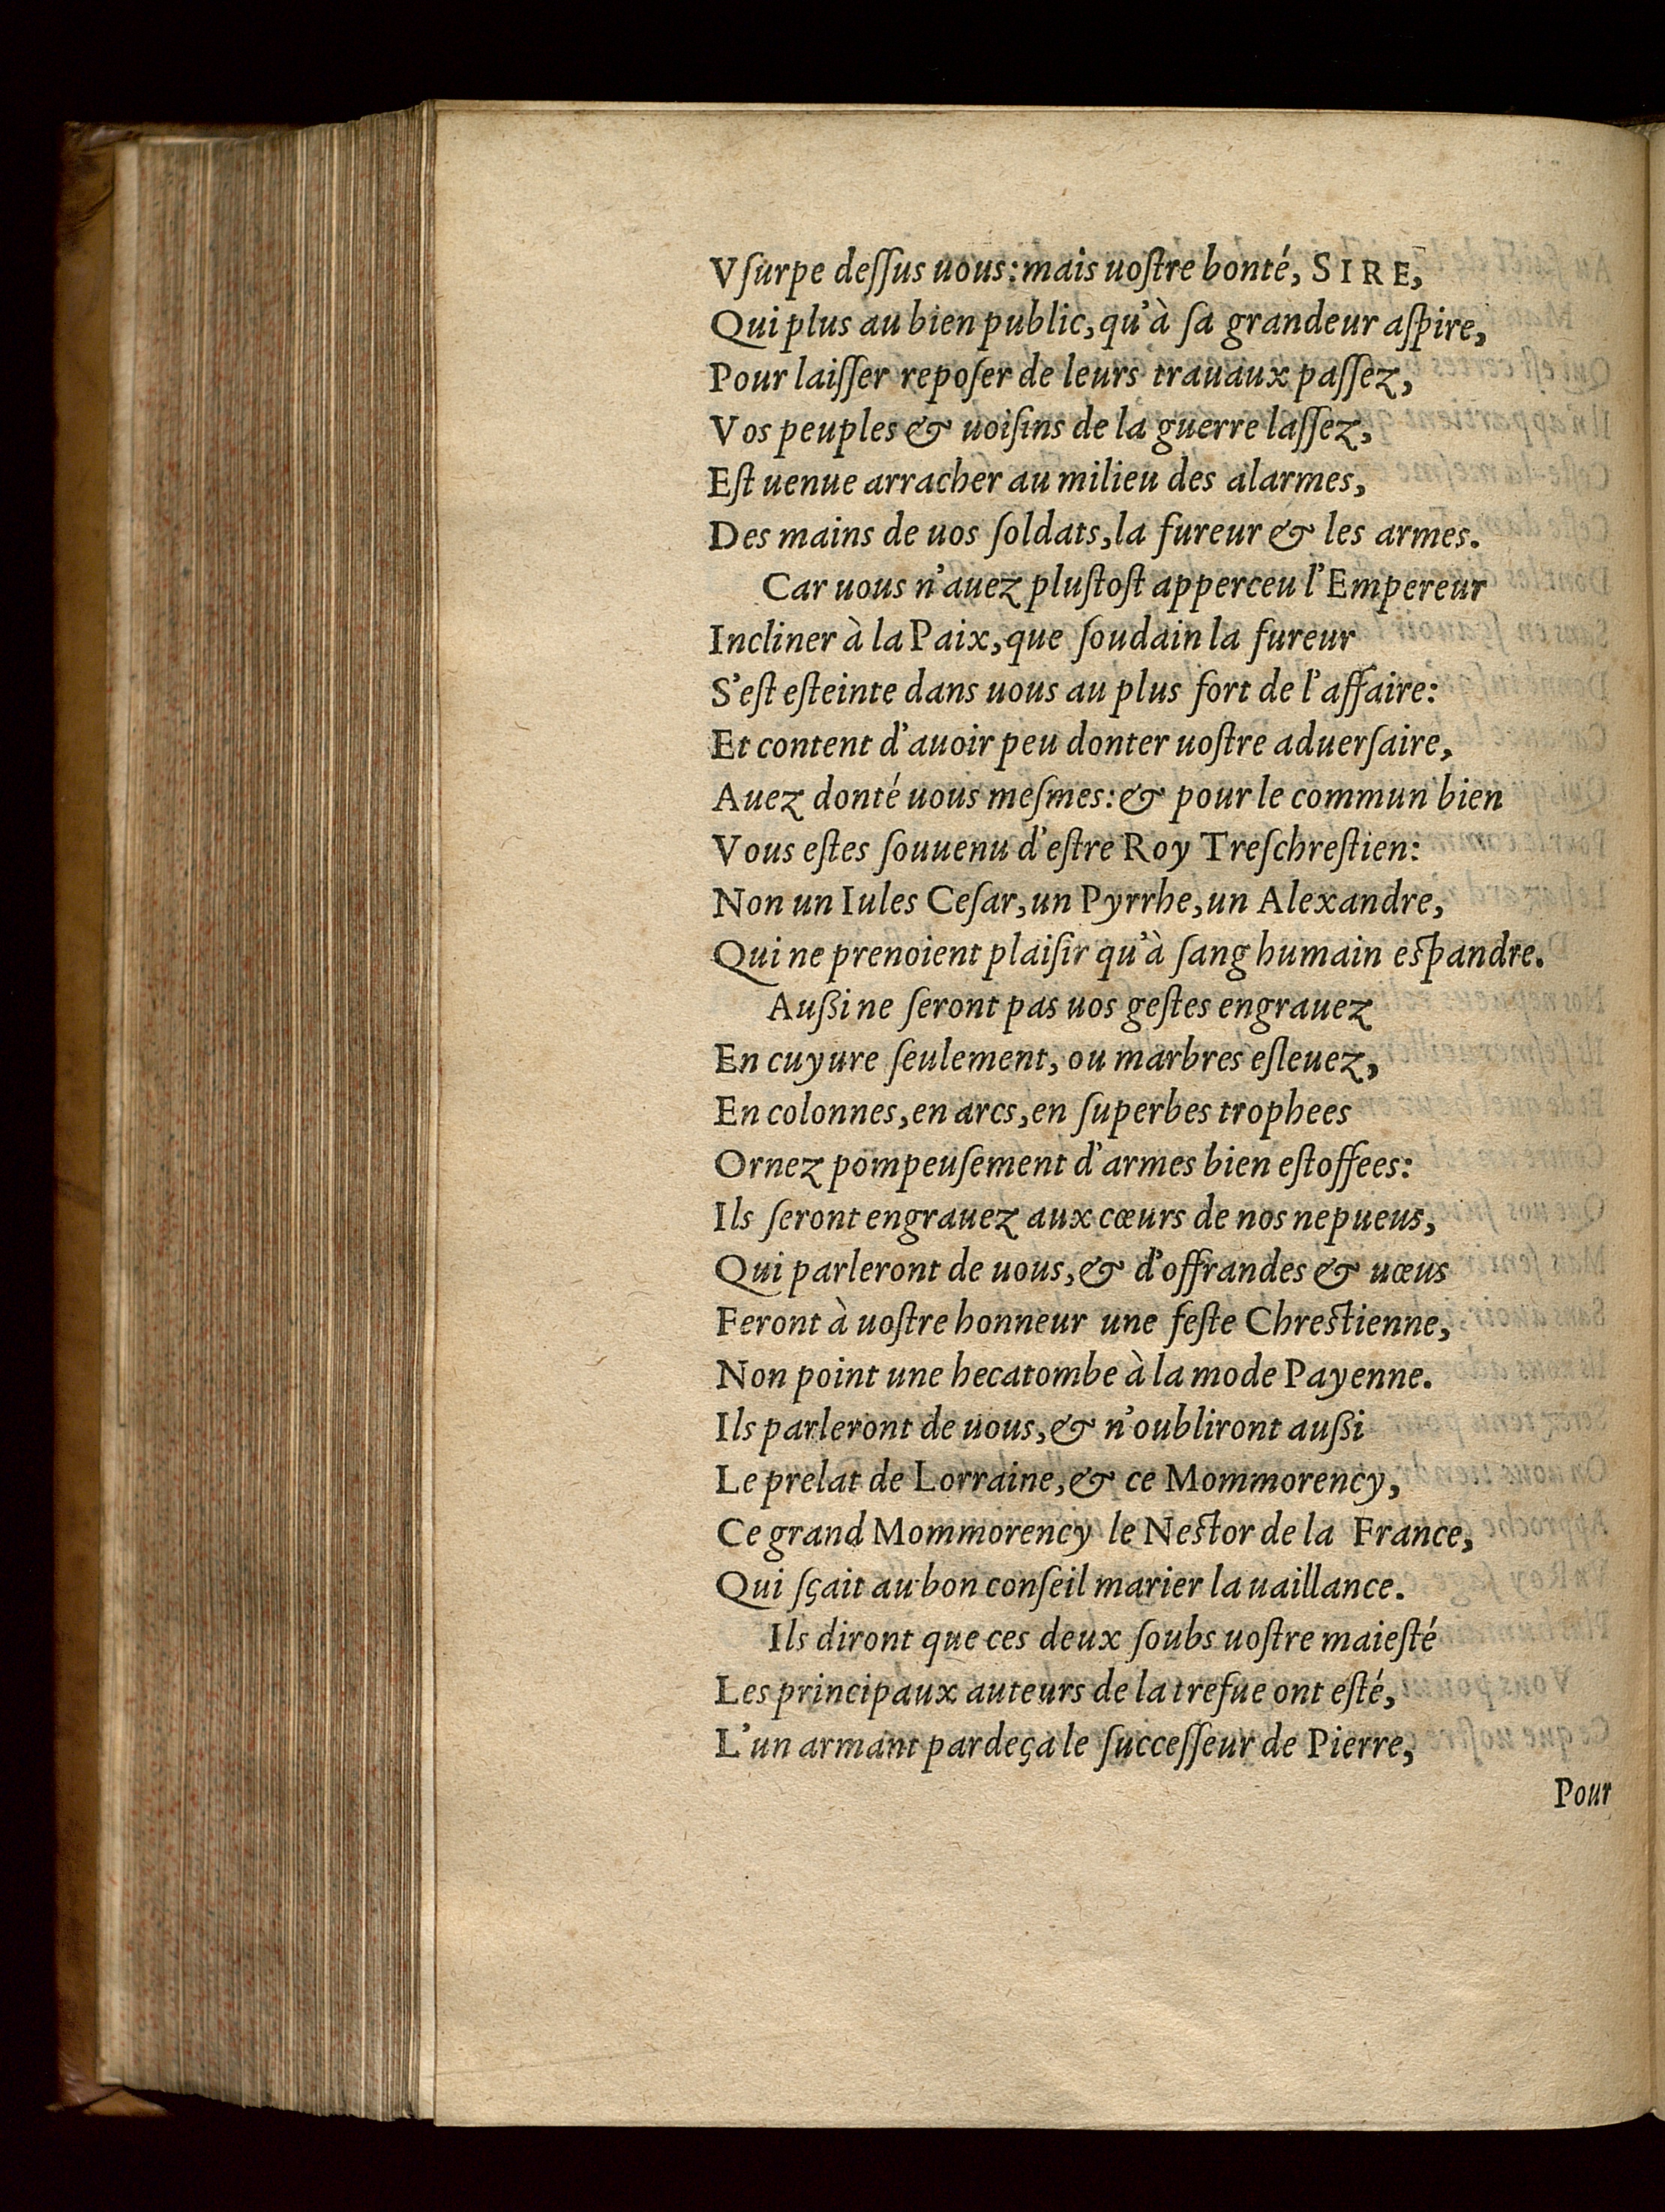 Vſurpe deſſus uous: mais uoſtre bonté, SIRE,
Qui plus au bien public, qu'à ſa grandeur aſpire,
Pour laiſſer repoſer de leurs trauaux paſſez,
Vos peuples & uoiſins de la guerre laſſez,
Eſt uenue arracher au milieu des alarmes,
Des mains de uos ſoldats, la fureur & les armes.
Car uous n'auez pluſtoſt apperceu l'Empereur
Incliner à la Paix, que ſoudain la fureur
S'eſt eſteinte dans uous au plus fort de l'affaire:
Et content d'auoir peu donter uoſtre aduerſaire,
Auez donté uous meſmes: & pour le commun bien
Vous eſtes ſouuenu d'eſtre Roy Treſchreſtien:
Non un Iules Ceſar, un Pyrrhe, un Alexandre,
Qui ne prenoient plaiſir qu'à ſang humain eſpandre.
Außi ne ſeront pas uos geſtes engrauez
En cuyure ſeulement, ou marbres eſleuez,
En colonnes, en arcs, en ſuperbes trophees
Ornez pompeuſement d'armes bien eſtoffees:
Ils ſeront engrauez aux cœurs de nos nepueus,
Qui parleront de uous, & d'offrandes & uœus
Feront à uoſtre honneur une feſte Chreſtienne,
Non point une hecatombe à la mode Payenne.
Ils parleront de uous, & n'oubliront außi
Le prelat de Lorraine, & ce Mommorency,
Ce grand Mommorency le Neſtor de la France,
Qui ſçait au bon conſeil marier la uaillance.
Ils diront que ces deux ſoubs uoſtre maieſté
Les principaux auteurs de la trefue ont eſté,
L'un armant pardeça le ſucceſſeur de Pierre,
Pour